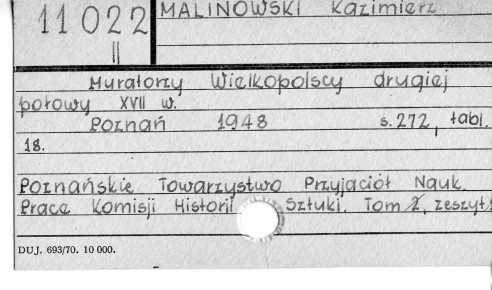 11022 MALINOWSKI Kazimierz
II
Muratorzy Wielkopolscy drugiej
połowy XVII w.
Poznań 1948 s. 272, tabl.
18.
Poznańskie Towarzystwo Przyjaciół Nauk.
Prace Komisji Historii Sztuki. Tom 2, zeszyt
DUJ. 693/70. 10 000.